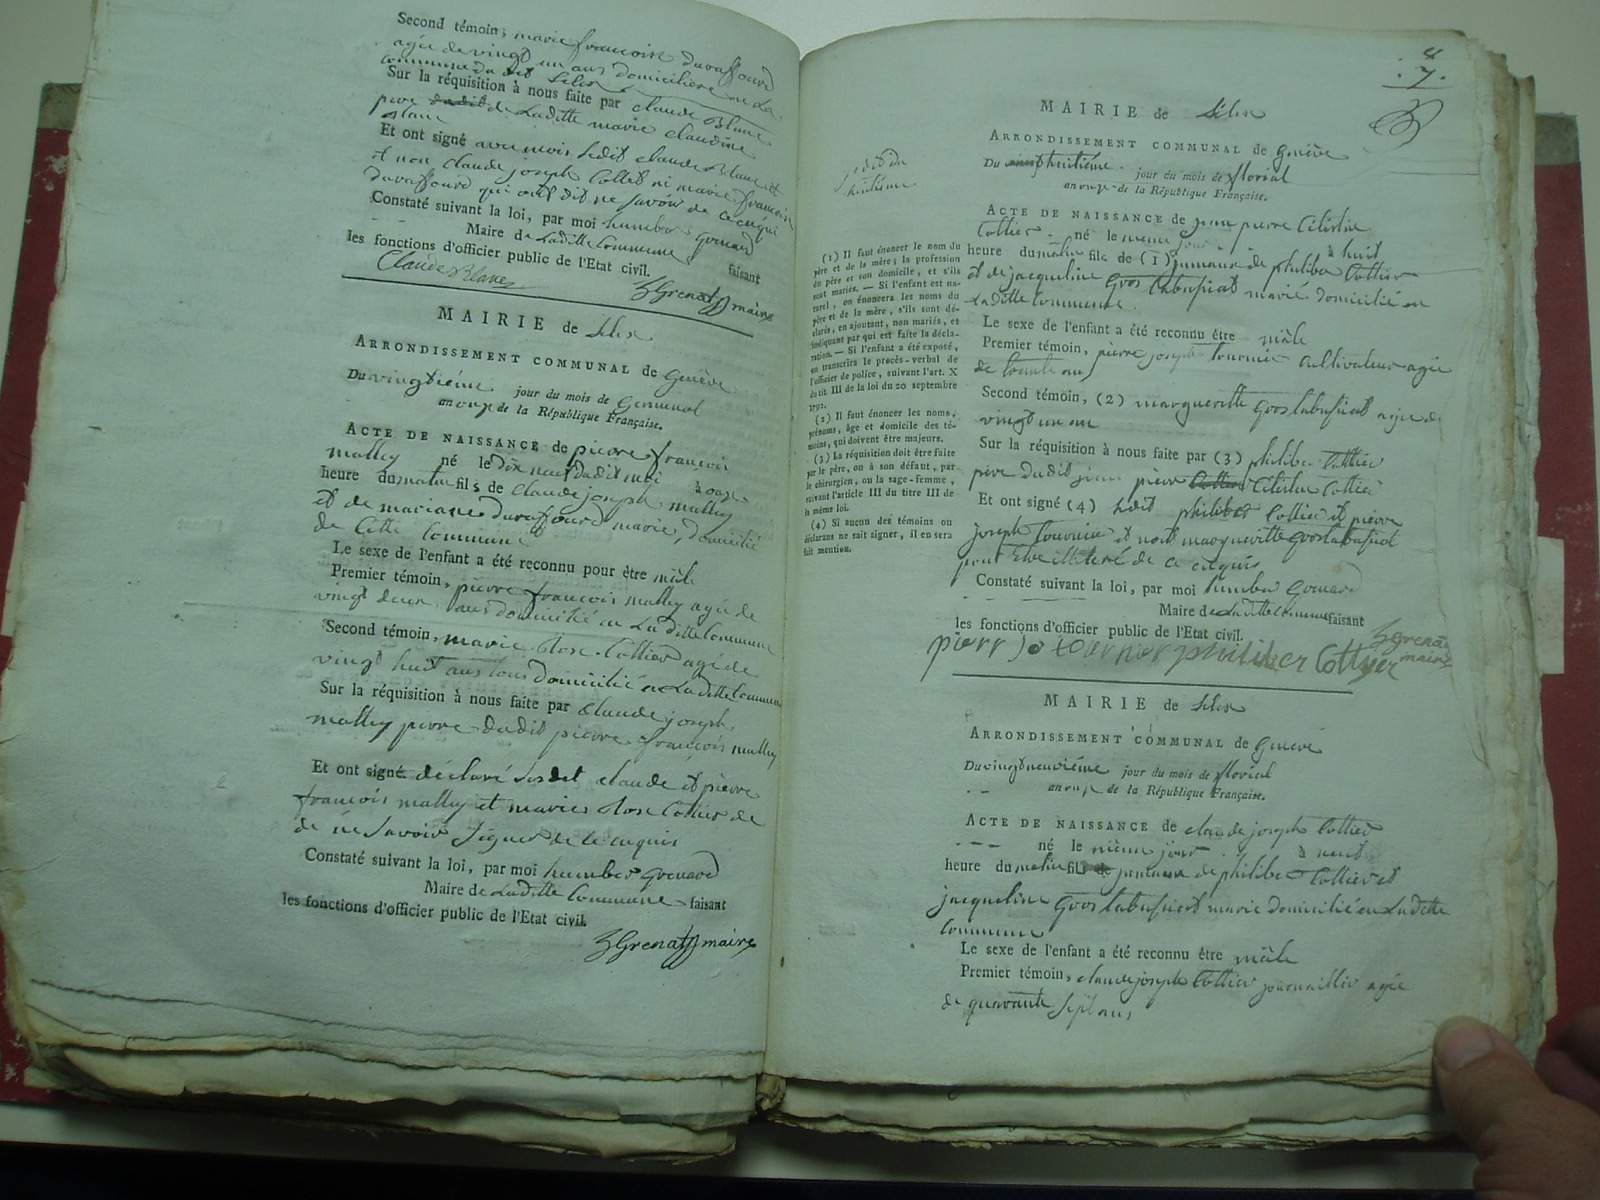 Second témoin, marie françoise duraffourd
agée de vingt un ans domiciliere en La
commune du dit Lelex
Sur la réquisition à nous faite par Claude Blanc
pere de Laditte marie claudine
Blanc
Et ont signé avec mois Ledit Claude Blanc et
et non Claude joseph Collet ni marie françoise
duraffourd qui ont dit ne savoir de ce enqui
Constaté suivant la loi, par moi humber grenard
Maire de Laditte Commune faisant
les fonctions d'officier public de l'Etat civil.
Claude Blanc
hGrenard maire
MAIRIE de Lelex
ARRONDISSEMENT COMMUNAL de Genève
Du vingtiéme jour du mois de Germinal
an onze de la République Française.
ACTE DE NAISSANCE de pierre françois
malley né le dix neuf dudit moi à onze
heure du matin fils de Claude joseph malley
et de mariane duraffourd mariés, domicilié
de Cette Commune
Le sexe de l'enfant a été reconnu pour être mâle
Premier témoin, pierre françois malley agée de
vingt deux ans domicilié en Laditte Commune
Second témoin, marie Rose Cottier agé de
vingt huit ans tous domicilié en Laditte Commune
Sur la réquisition à nous faite par Claude joseph
malley perre dudit pierre françois malley
Et ont signé déclaré Lesdit claude et pierre
françois malley et maries Rose Cottier de
de ne Savoir Signer de ce enquis
Constaté suivant la loi, par moi humber grenard
Maire de Laditte Commune faisant
les fonctions d'officier public de l'Etat civil.
hGrenard maire
7.
MAIRIE de Lelex
ARRONDISSEMENT COMMUNAL de Genève
Du huitiéme jour du mois de florial
an onze de la République Française.
huitième
ACTE DE NAISSANCE de jean pierre Célestin
Cottier né le meme jour à huit
heure du matin fils de (1) jumaux de philiber Cottier
et de jacqueline grostabussiat marié domicilié en
Laditte Commune
Le sexe de l'enfant a été reconnu être mâle
Premier témoin, pierre joseph tournier cultivateur agée
de trente ans
Second témoin, (2) margueritte grostabussiat agée de
vingt un an
Sur la réquisition à nous faite par (3) philiber Cottier
père dudit jean pierre Célestin Cottier
Et ont signé (4) Ledit philiber Cottier et pierre
joseph tournier et non margueritte grostabussiat
pour Etre illiteré de ce enquis
Constaté suivant la loi, par moi humber Grenard
Maire de Laditte Commune faisant
les fonctions d'officier public de l'Etat civil.
hGrenard
maire
pierr jo tournier philiber Cottier
(1) Il faut énoncer le nom du
père et de la mère; la profession
du père et son domicile, et s'ils
sont mariés. — Si l'enfant est na-
turel, on énoncera les noms du
père et de la mère, s'ils sont dé-
clarés, en ajoutant, non mariés, et
indiquant par qui est faite la décla-
ration. — Si l'enfant a été exposé,
on transcrira le procès-verbal de
l'officier de police, suivant l'art. X
du tit III de la loi du 20 septembre
1792.
(2) Il faut énoncer les noms,
prénoms, âge et domicile des té-
moins, qui doivent être majeurs.
(3) La réquisition doit être faite
par le père, ou à son défaut, par
le chirurgien, ou la sage-femme,
suivant l'article III du titre III de
la même loi.
(4) Si aucun des témoins ou
déclarans ne sait signer, il en sera
fait mention.
MAIRIE de Lelex
ARRONDISSEMENT COMMUNAL de Genève
Du vingtneuviéme jour du mois de florial
an onze de la République Française.
ACTE DE NAISSANCE de claude joseph Cottier
né le même jour à neuf
heure du matin fils de jumaux de philiber Cottier et
jacqueline grostabussiat marié domicilié en Laditte
Commune
Le sexe de l'enfant a été reconnu être mâle
Premier témoin, claude joseph Cottier journaillier agée
de quarante Sept ans